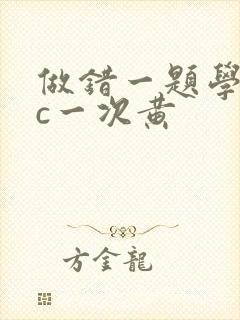 做錯一題學
c一次黃
方金龍